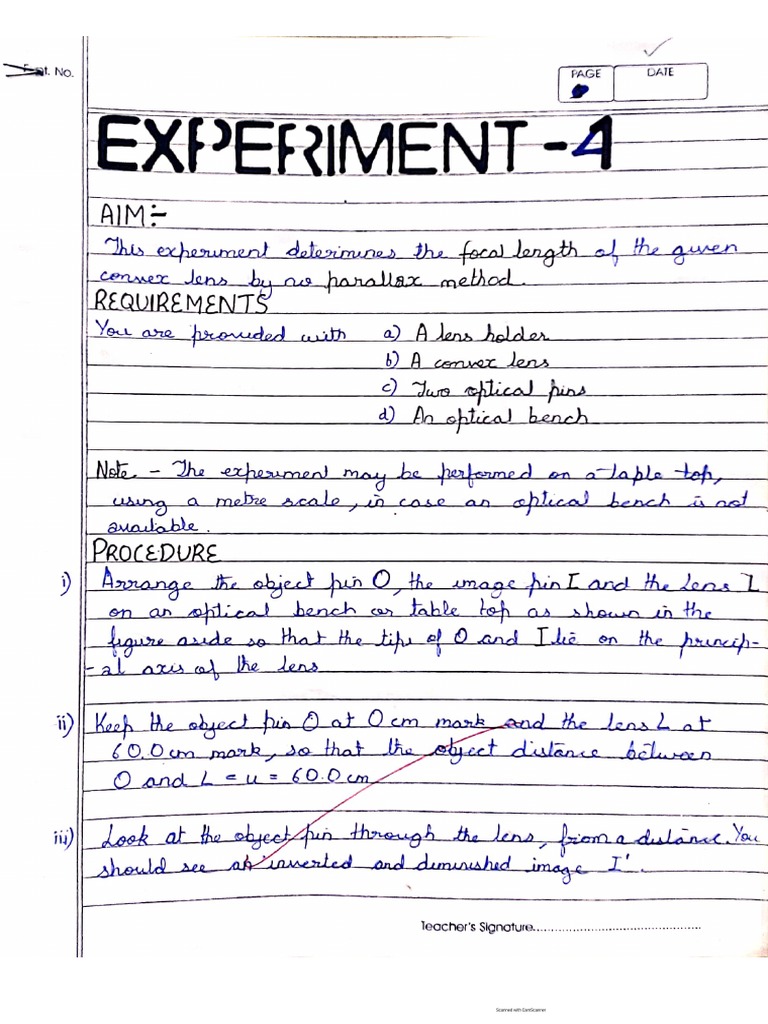 Expt. No.
PAGE
DATE
EXPERIMENT - 4
AIM :-
This experiment determines the focal length of the given
convex lens by no parallax method.
REQUIREMENTS
You are provided with a) A lens holder
b) A convex lens
c) Two optical pins
d) An optical bench
Note - The experiment may be performed on a table top,
using a metre scale, in case an optical bench is not
available.
PROCEDURE
i) Arrange the object pin O, the image pin I and the lens L
on an optical bench or table top as shown in the
figure aside so that the tips of O and I lie on the princip-
-al axis of the lens
ii) Keep the object pin O at 0 cm mark and the lens L at
60.0 cm mark, so that the object distance between
O and L = u = 60.0 cm
iii) Look at the object pin through the lens, from a distance. You
should see an inverted and diminished image I'.
Teacher's Signature
Scanned with CamScanner